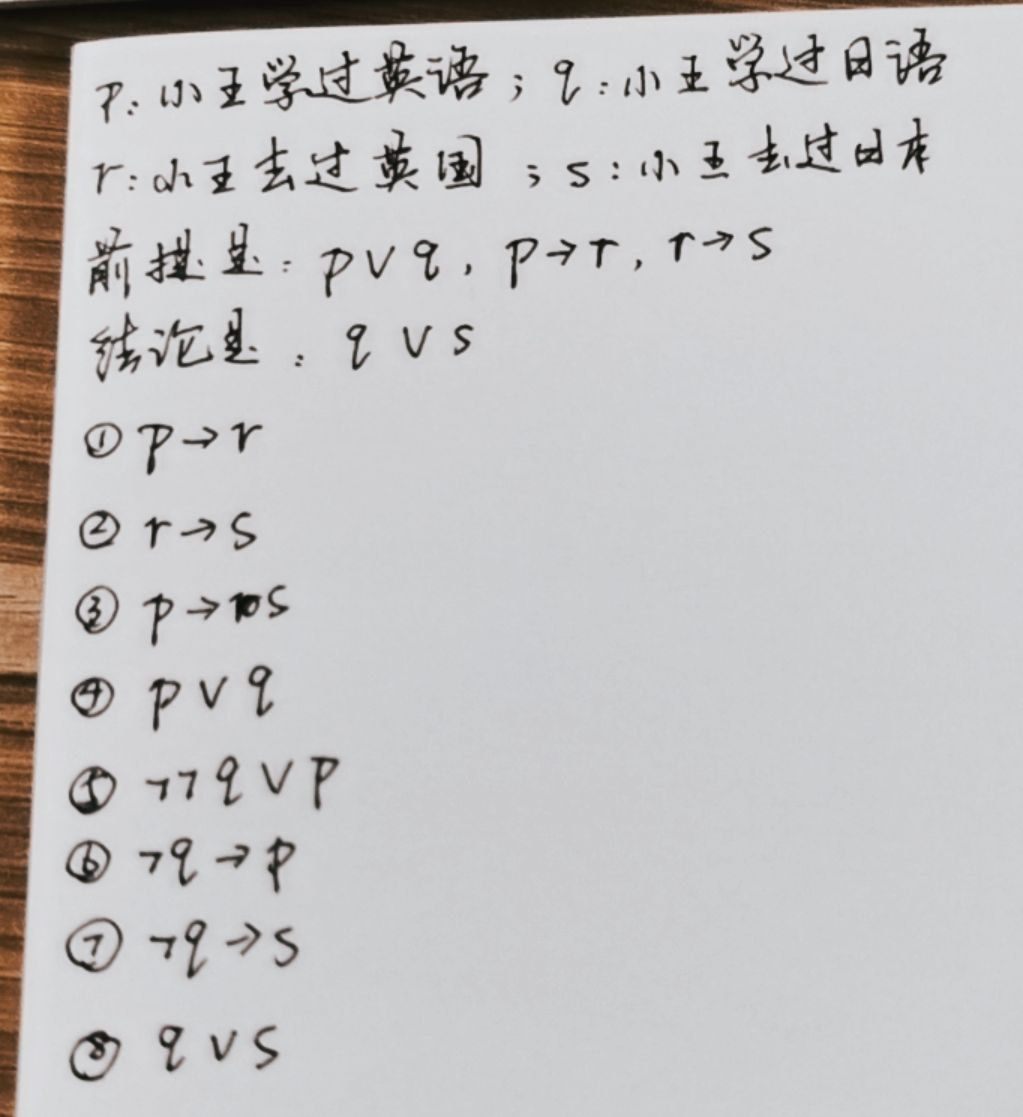 p:小王学过英语;q:小王学过日语
r:小王去过英国;s:小王去过日本
前提是:p∨q,p→r,r→s
结论是:q∨s
① p→r
② r→s
③ p→s
④ p∨q
⑤ ¬¬q∨p
⑥ ¬q→p
⑦ ¬q→s
⑧ q∨s